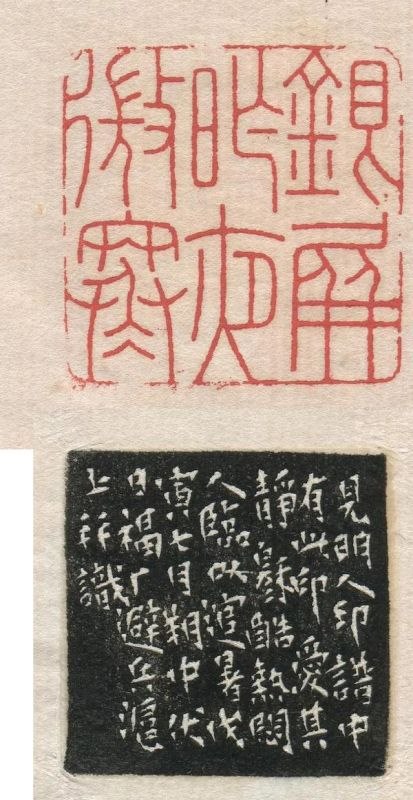 銀屏
昨夜
微寒
見明人印譜中
有此印愛其
靜穆酷熱悶
人臨此逭暑戊
寅七月朔中伏
日福厂避兵滬
上并識